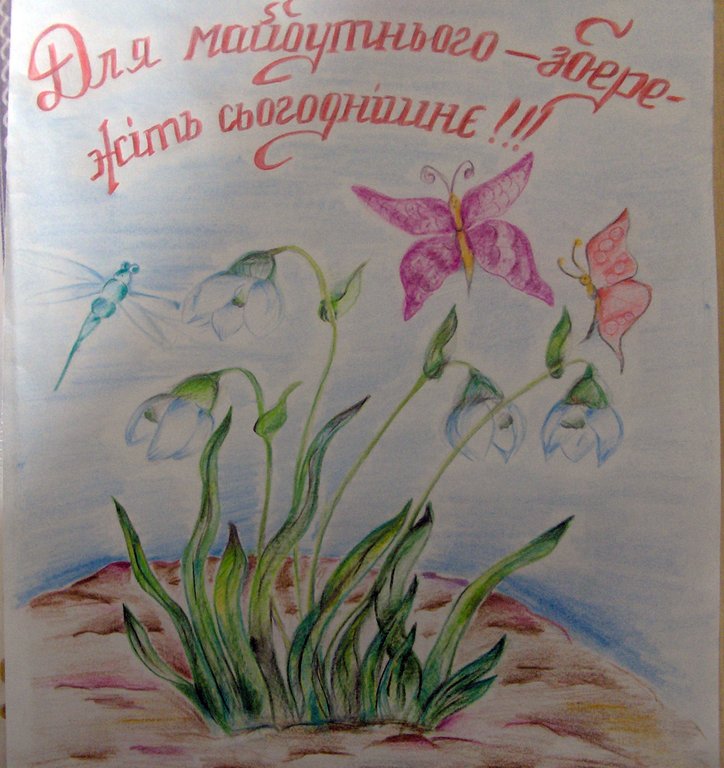 Для майбутнього – збере-
жіть сьогоднішнє!!!